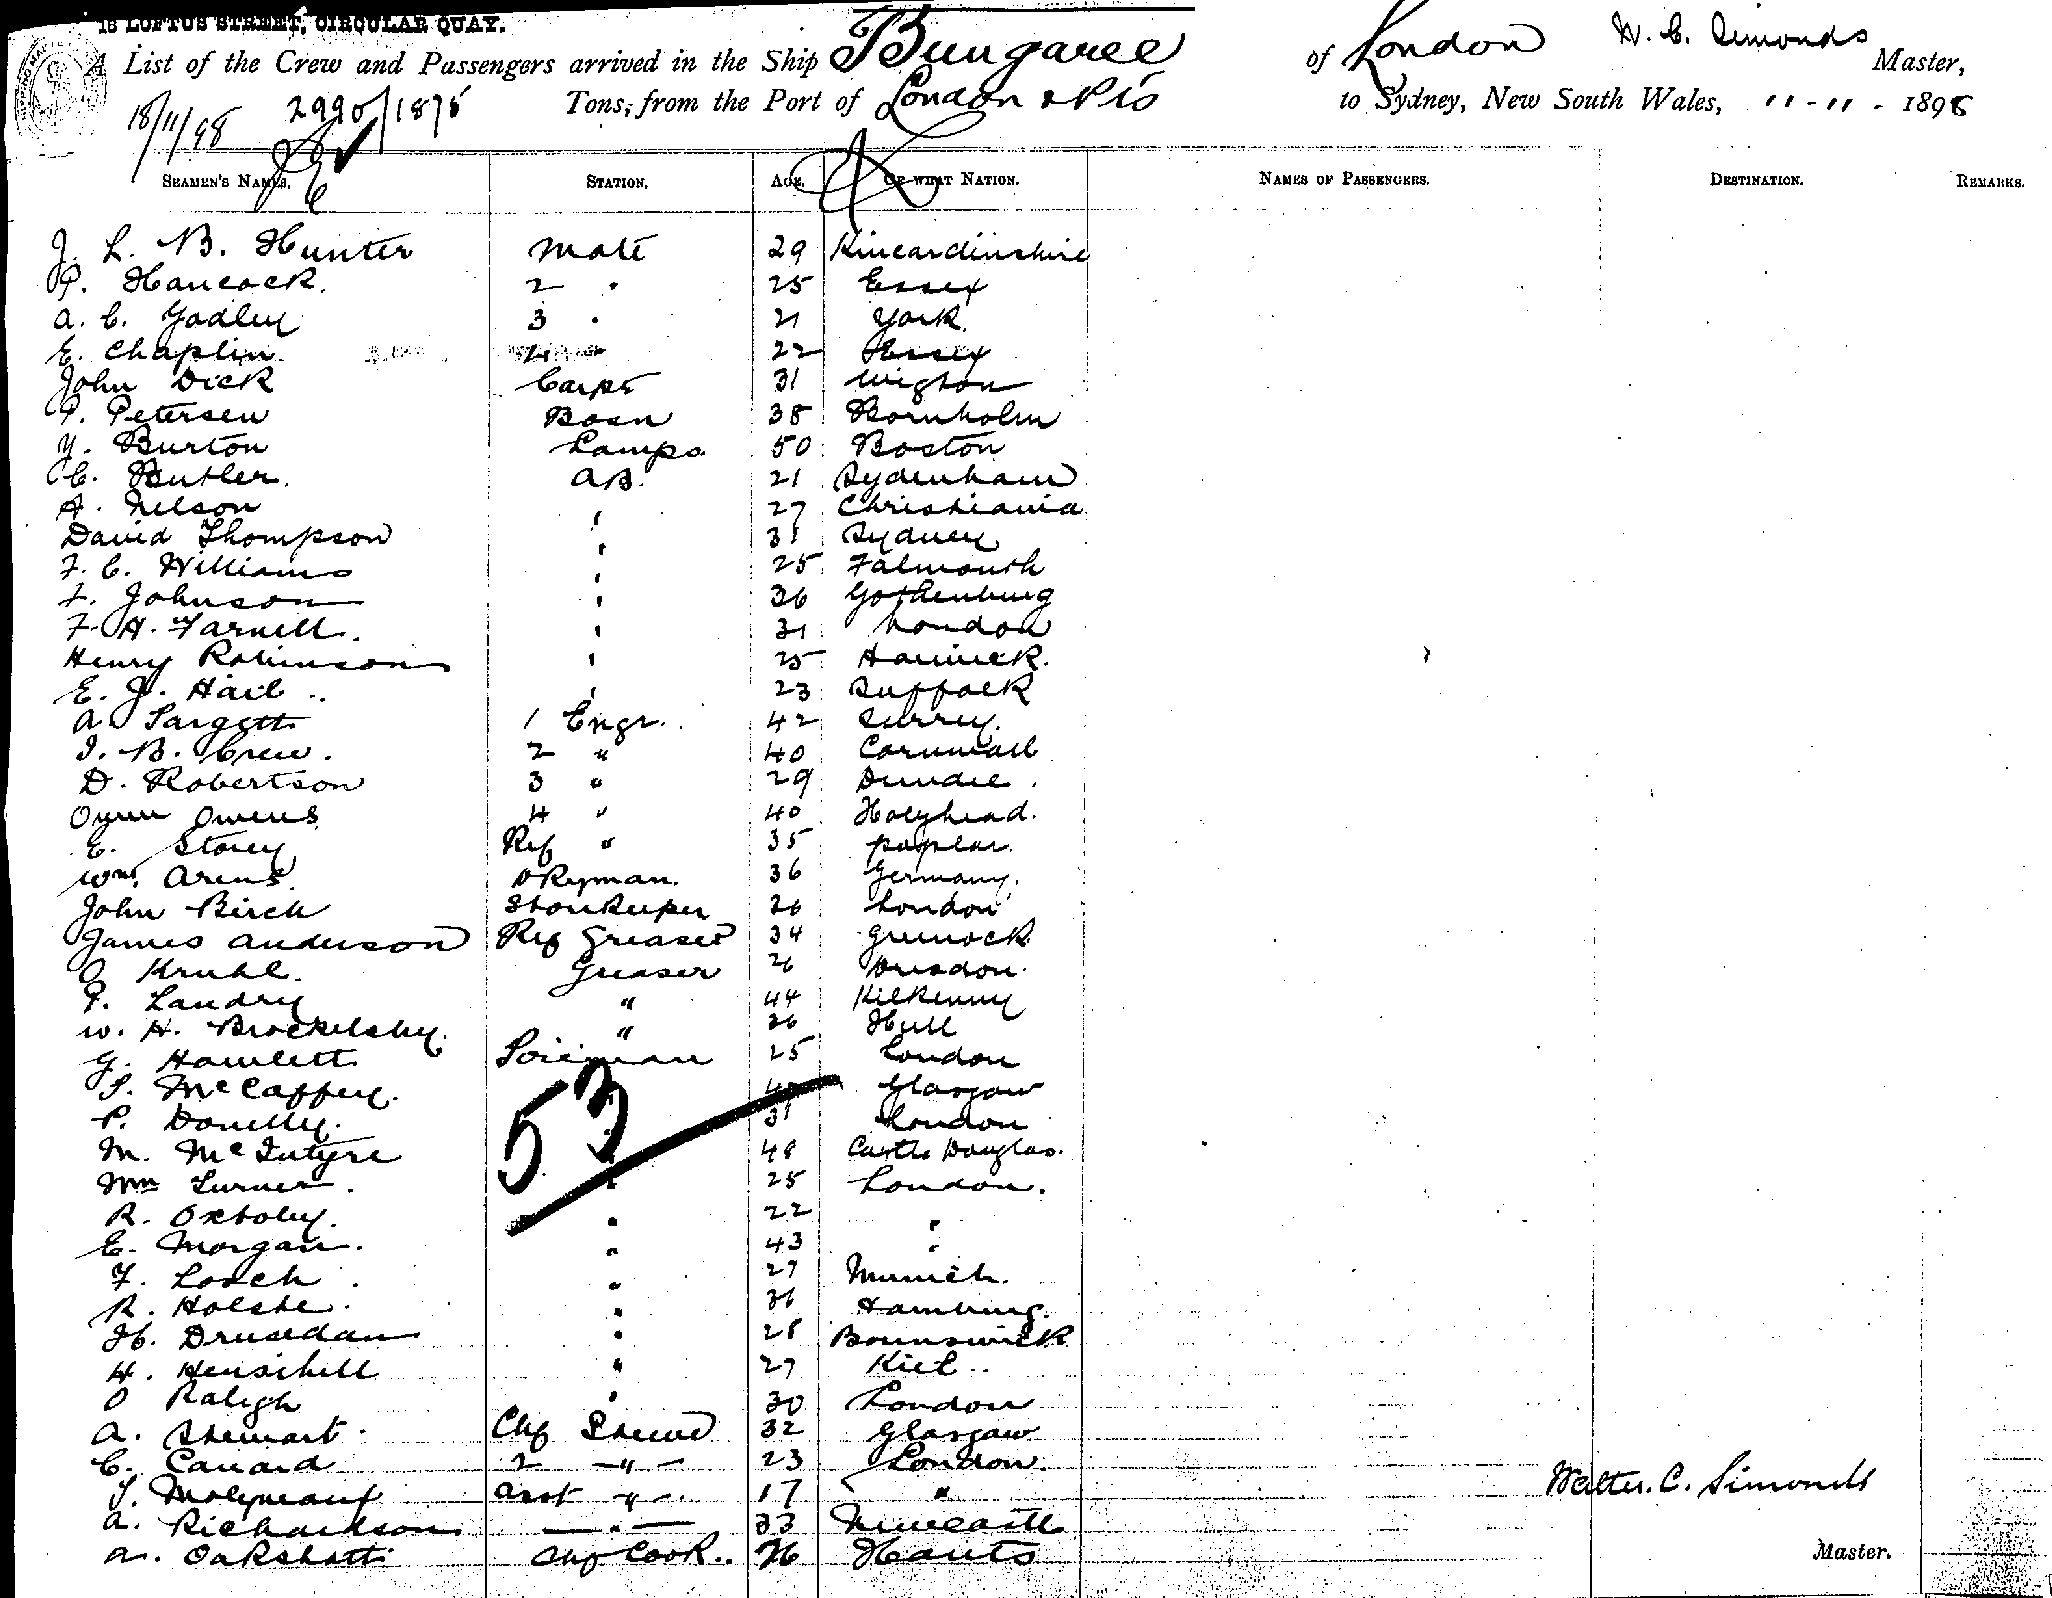 18 LOFTUS STREET, CIRCULAR QUAY.
A List of the Crew and Passengers arrived in the Ship Bungaree of London W. C. Simonds Master,
18/11/98 2990/1875 Tons, from the Port of London & Pts to Sydney, New South Wales, 11-11-1898
SEAMEN'S NAMES. STATION. AGE. OF WHAT NATION. NAMES OF PASSENGERS. DESTINATION. REMARKS.
J. L. B. Hunter Mate 29 Kincardinshire
P. Hancock. 2 " 25 Essex
A. C. Yadley 3 " 21 York
E. Chaplin 4 " 22 Essex
John Dick Carpr 31 Wigton
P. Petersen Bosn 38 Bornholm
Y. Burton Lamps 50 Boston
C. Butler. AB. 21 Sydenham
A. Nelson " 27 Christiania
David Thompson " 31 Sydney
F. C. Williams " 25 Falmouth
F. Johnson " 36 Gothenburg
F. H. Farnell. " 31 London
Henry Robinson " 25
E. J. Hail " 23 Suffolk
A. Sargett 1 Engr. 42 Surrey.
J. B. Crew. 2 " 40 Cornwall
D. Robertson 3 " 29 Dundee.
Owen Owens 4 " 40 Holyhead.
E. Storey Ref " 35 Poplar.
Wm. Arens. DKeyman. 36 Germany.
John Birch Storekeeper 26 London
James Anderson Ref Greaser 34 Greenock
O Kruhl. Greaser 26 Dresdon.
P. Landry " 44 Kilkenny
W. H. Brockelsby. " 26 Hull
G. Hamlett Fireman 25 London
S. McCaffery. Glasgow
P. Donelly. 31 London
M. McIntyre 48 Castle Douglas.
53
Wm Turner. " 25 London.
R. Oxtoby. " 22 "
E. Morgan. " 43 "
F. Losch. " 27 Munich.
R. Holste. " 31 Hamburg.
H. Drusedan " 28 Bounswick
H. Henschell " 27 Kiel.
O Raligh " 30 London
A. Stewart. Chf Steward 32 Glasgow
C. Canard 2 — " — 23 London.
S. Molyneaux Asst — " — 17 " Walter. C. Simonds
A. Richardson — " — 33 Newcastle
A. Oakshatt Chf Cook.. 26 Hants Master.